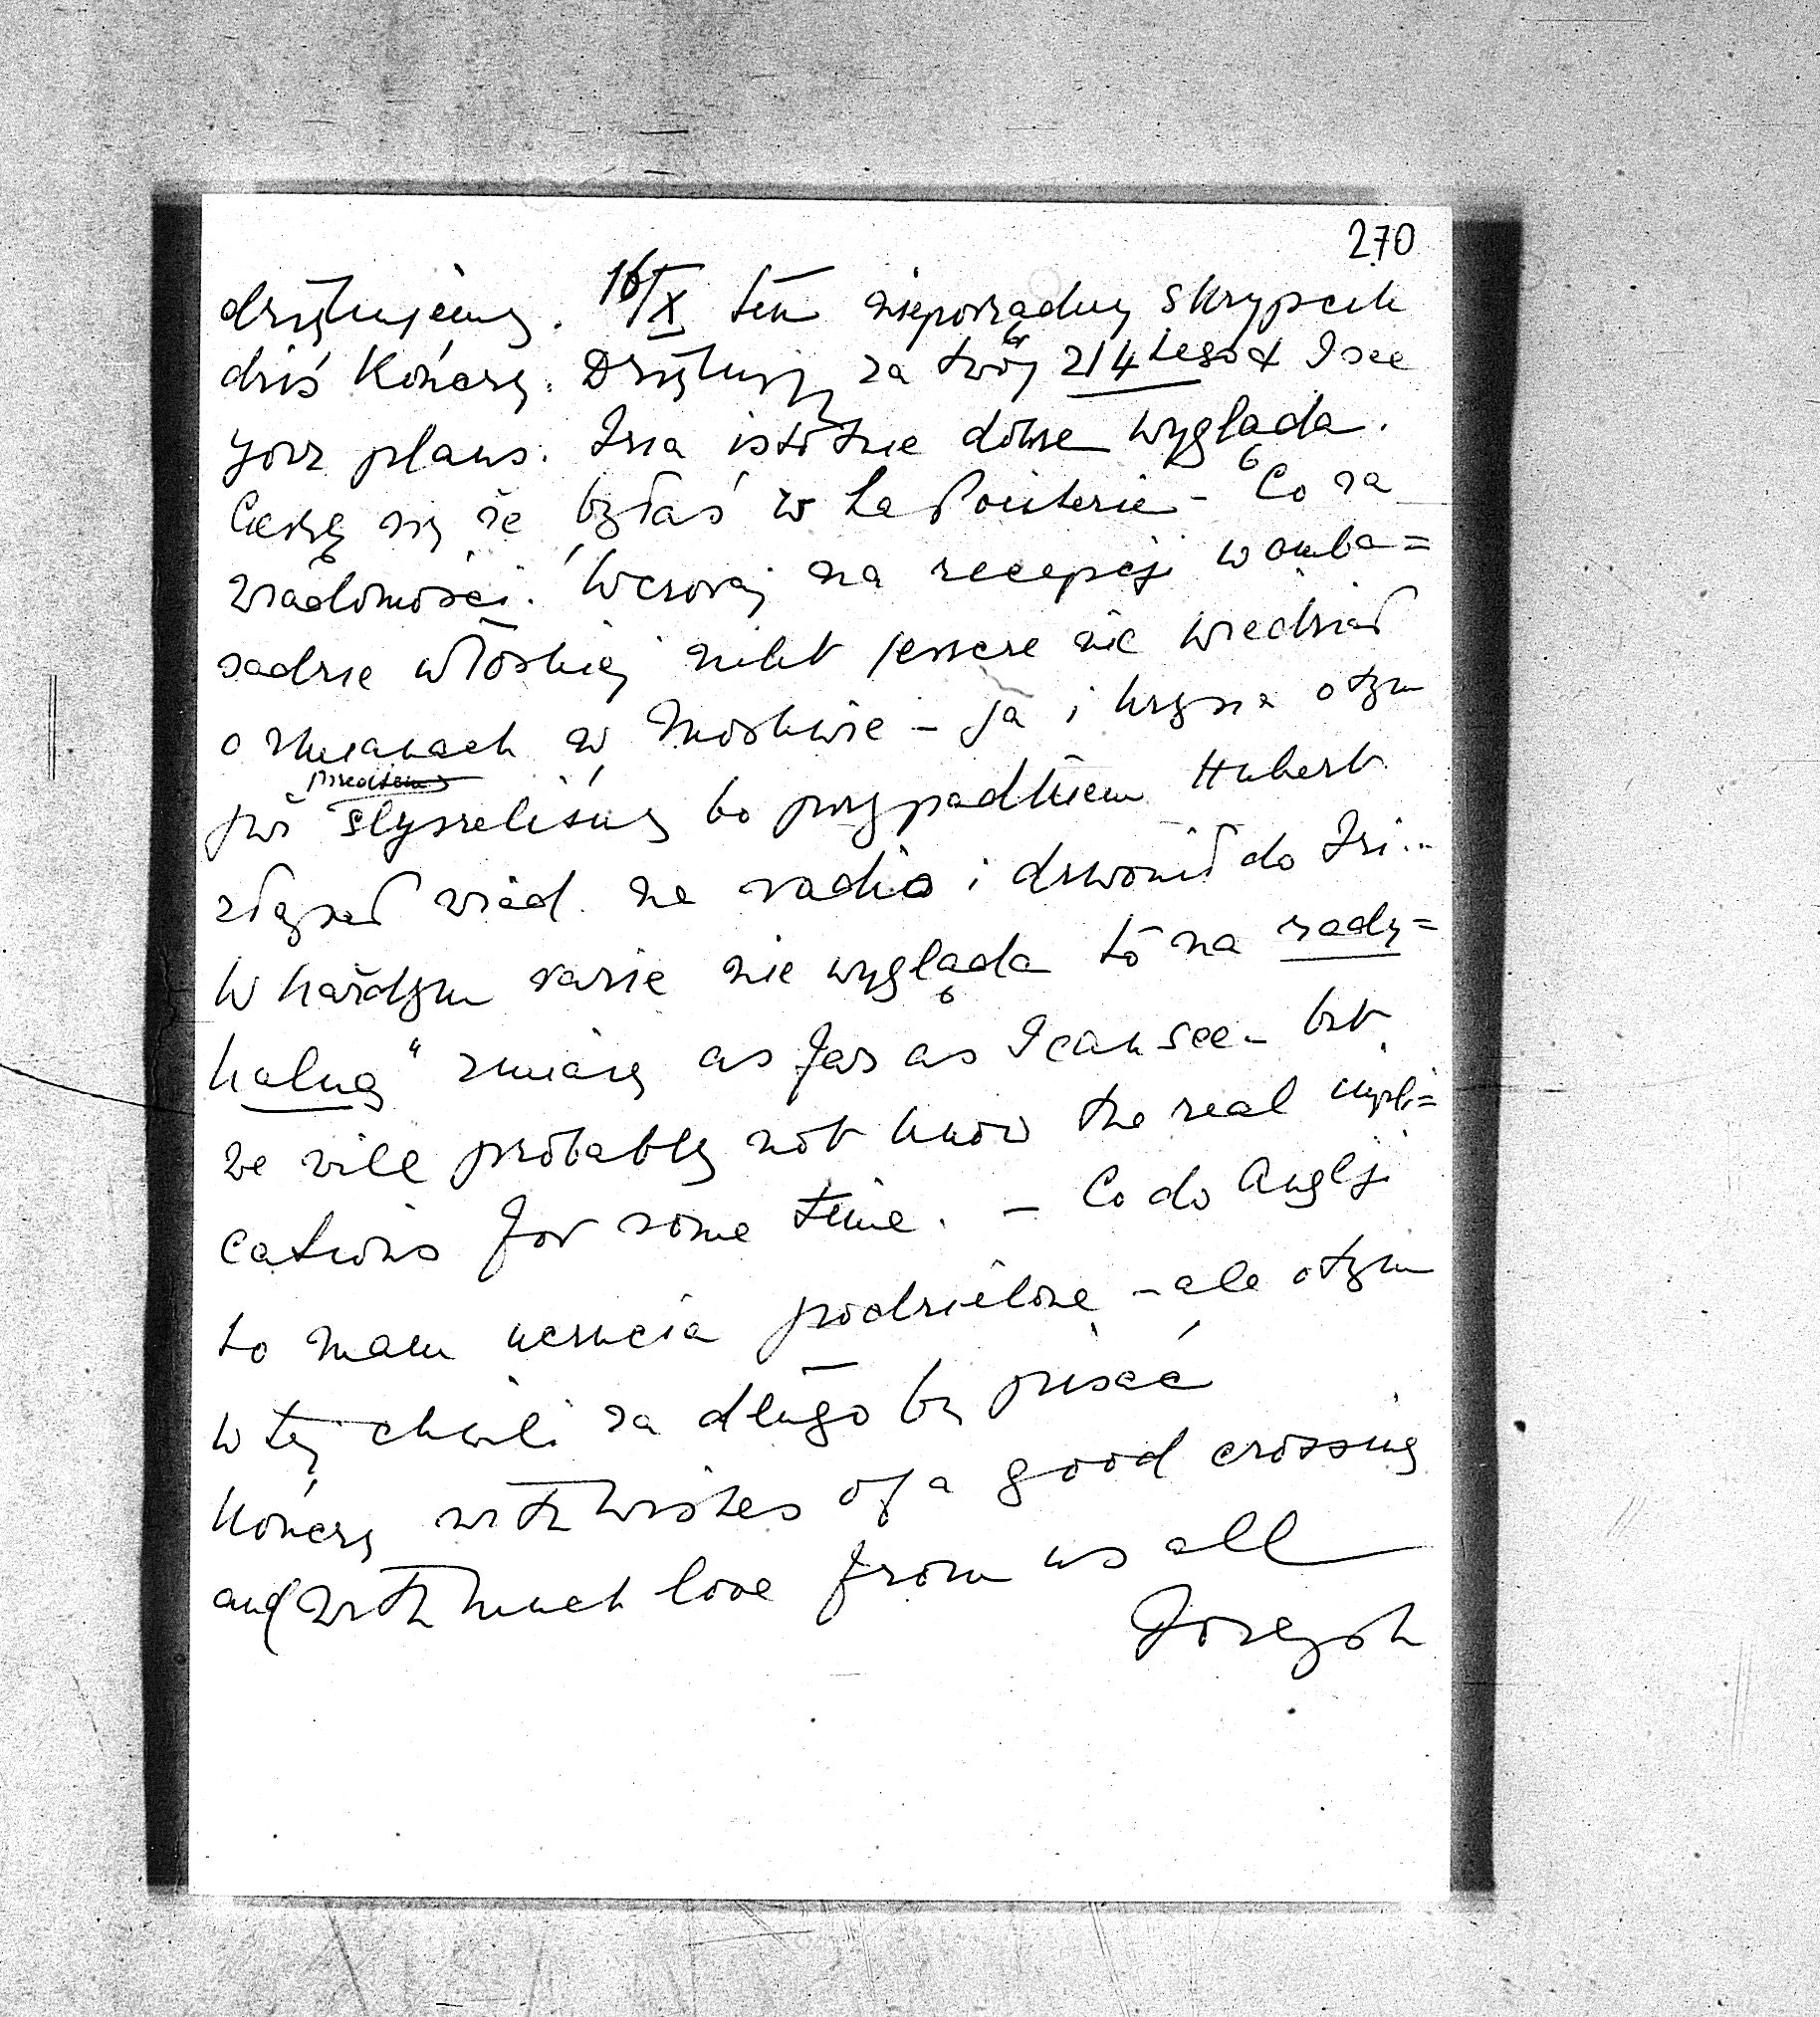 270
dziękujemy. 16/X ten nieporządny skrypcik
dziś kończę. Dziękuję za twój 214 tego & I see
your plans. Iria istotnie dobrze wygląda.
Cieszę się że byłaś w La Pouiterie - Co za
wiadomości. Wczoraj na recepcji w amba=
sadzie włoskiej nikt jeszcze nie wiedział
o zmianach w Moskwie - ja i Krysia o tym
już słyszeliśmy bo przypadkiem Hubert
złapał wiad. na radio i dzwonił do Iri..
W każdym razie nie wygląda to na rady=
kalną" zmianę as far as I can see - but
we will probably not know the real impli=
cations for some time. - Co do Anglji
to mam uczucia podzielone - ale o tym
w tej chwili za długo by pisać
Kończę with wishes of a good crossing
and with much love from us all
Joseph